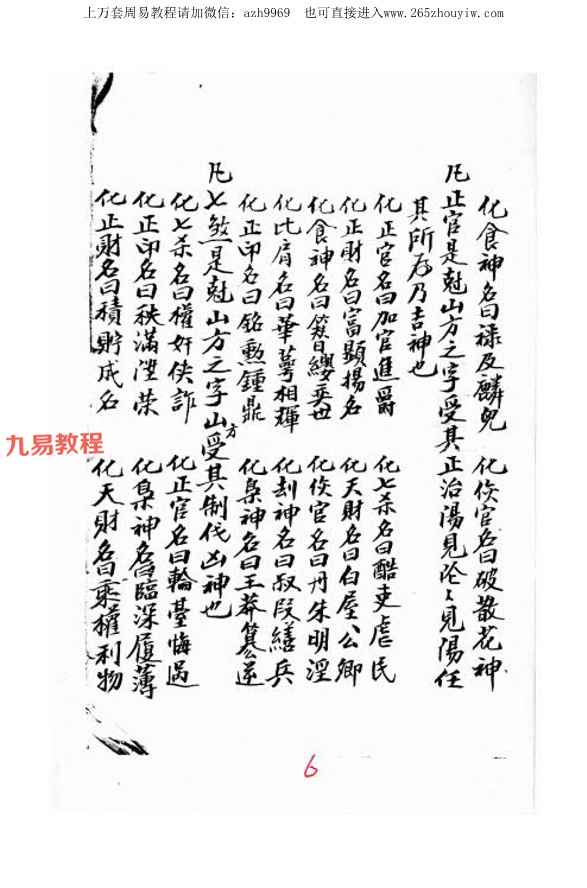 上万套周易教程请加微信：azh9969 也可直接进入www.265zhouyiw.com
化食神名曰禄及麟兒 化傷官名曰破散花神
凡正官是尅山方之字受其正治陽見阴阴見陽任
其所为乃吉神也
化正官名曰加官進爵 化七杀名曰酷吏虐民
化正財名曰富顯揚名 化天財名曰白屋公卿
化食神名曰簪纓奕世 化傷官名曰丹朱明淫
化比肩名曰華萼相輝 化刦神名曰叔段繕兵
化正印名曰銘勲鍾鼎 化梟神名曰王莽篡逆
凡七煞是尅山方之字山方受其制伐凶神也
化七杀名曰權奸侠詐 化正官名曰輪臺悔過
化正印名曰秩滿陞荣 化梟神名曰臨深履薄
化正財名曰積貯成名 化天財名曰乘權利物
九易教程
6